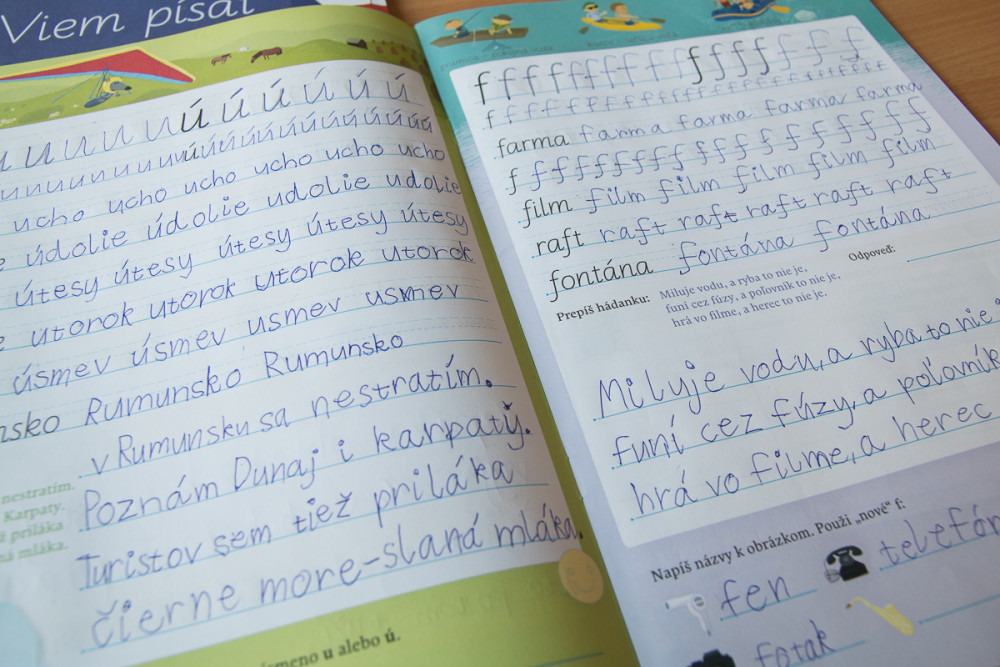 Viem písať
u u u u u u ú ú ú ú ú ú
u u u u u u u ú ú ú ú ú ú ú ú ú ú ú ú ú
ucho ucho ucho ucho ucho ucho
údolie údolie údolie udolie
útesy útesy útesy útesy
utorok utorok utorok utorok
úsmev úsmev usmev usmev
Rumunsko Rumunsko
v Rumunsku sa nestratím.
Poznám Dunaj i karpaty.
Turistov sem tiež priláka
čierne more-slaná mláka.
nestratím.
Karpaty.
priláka
mláka.
u alebo ú.
f f f f f f f f f f f f f f f f f
f f f f f f f f f f f f f f f f f f f f
farma farma farma farma farma
f f f f f f f f f f f f f f f f f f
film film film film film film
raft raft raft raft raft
fontána fontána fontána
Prepíš hádanku: Miluje vodu, a ryba to nie je,
funí cez fúzy, a poľovník to nie je,
hrá vo filme, a herec to nie je.
Odpoveď:
Miluje vodu, a ryba to nie
funí cez fúzy, a poľovník
hrá vo filme, a herec
Napíš názvy k obrázkom. Použi „nové“ f:
fen telefón
fotak